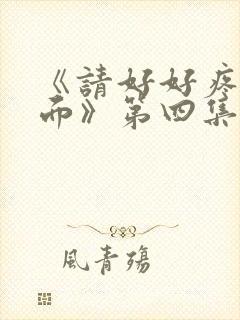 《請好好疼
而》第四集
風青殤